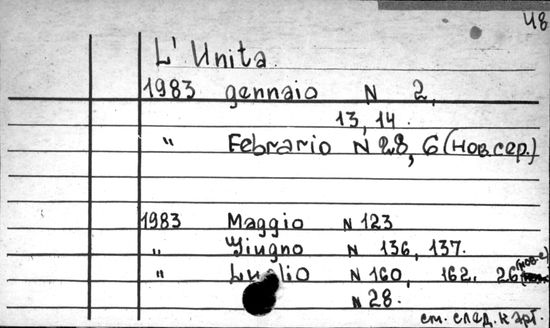 48
L' Unita
1983 gennaio N 2,
13, 14.
" Febrario N 28, 6 (нов.сер.)
1983 Maggio N 123
" Giugno N 136, 137.
" Luglio N 160, 162, 26 (нов-с)
N 28.
см. след. карт.